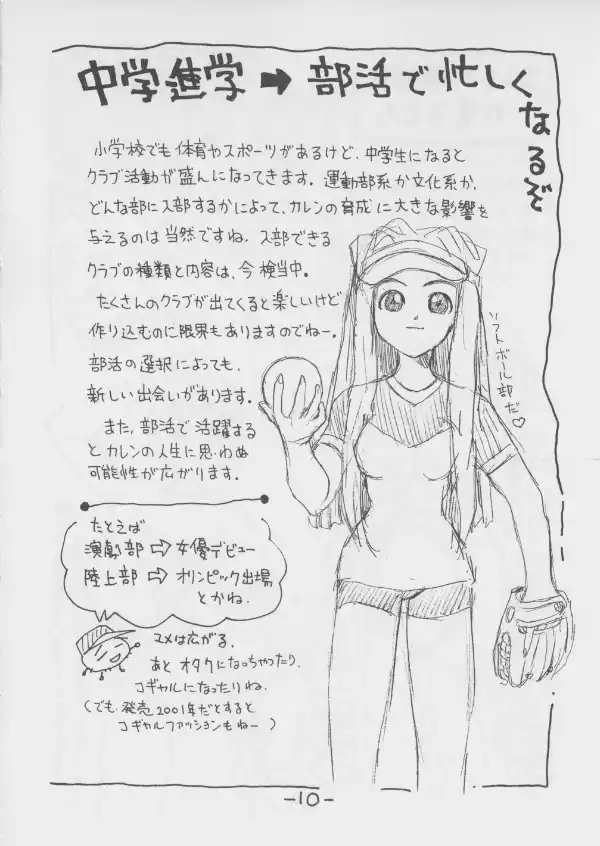 中学進学➡部活で忙しく
なるぞ
小学校でも体育やスポーツがあるけど、中学生になると
クラブ活動が盛んになってきます。運動部系か文化系か、
どんな部に入部するかによって、カレンの育成に大きな影響を
与えるのは当然ですね。入部できる
クラブの種類と内容は、今検当中。
たくさんのクラブが出てくると楽しいけど
作り込むのに限界もありますのでねー。
部活の選択によっても、
新しい出会いがあります。
また、部活で活躍する
とカレンの人生に思わぬ
可能性が広がります。
ソフトボール部だ♡
たとえば
演劇部⇨女優デビュー
陸上部⇨オリンピック出場
とかね。
ユメは広がる。
あとオタクになっちゃったり、
コギャルになったりね。
(でも、発売2001年だとすると
コギャルファッションもねー)
-10-